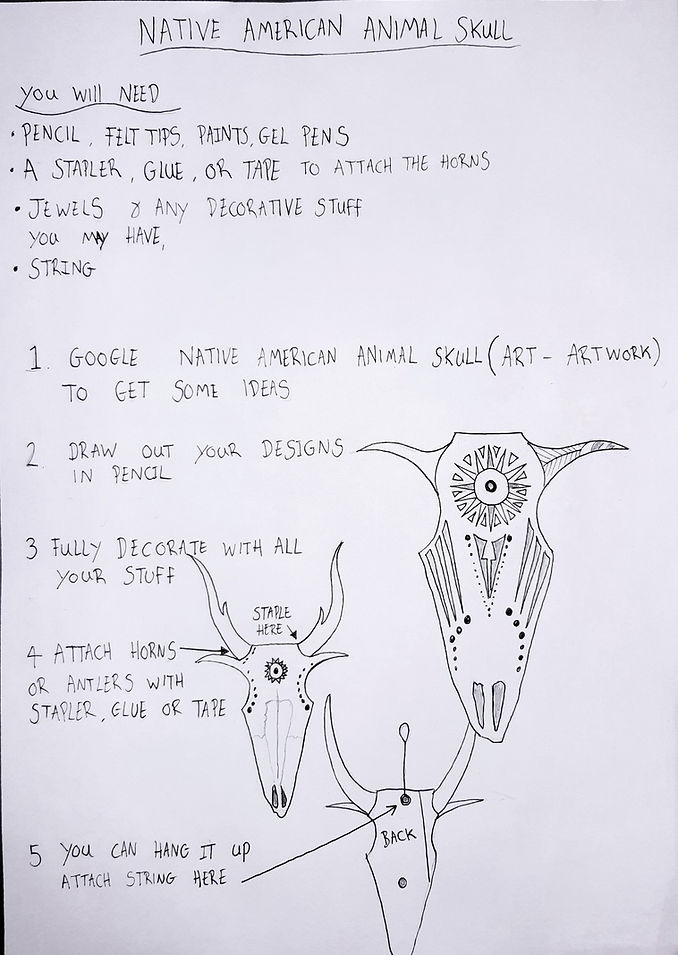 NATIVE AMERICAN ANIMAL SKULL
YOU WILL NEED
• PENCIL, FELT TIPS, PAINTS, GEL PENS
• A STAPLER, GLUE, OR TAPE TO ATTACH THE HORNS
• JEWELS & ANY DECORATIVE STUFF
YOU MAY HAVE,
• STRING
1. GOOGLE NATIVE AMERICAN ANIMAL SKULL (ART - ARTWORK)
TO GET SOME IDEAS
2. DRAW OUT YOUR DESIGNS
IN PENCIL
3 FULLY DECORATE WITH ALL
YOUR STUFF
STAPLE
HERE
4 ATTACH HORNS
OR ANTLERS WITH
STAPLER, GLUE OR TAPE
BACK
5 YOU CAN HANG IT UP
ATTACH STRING HERE